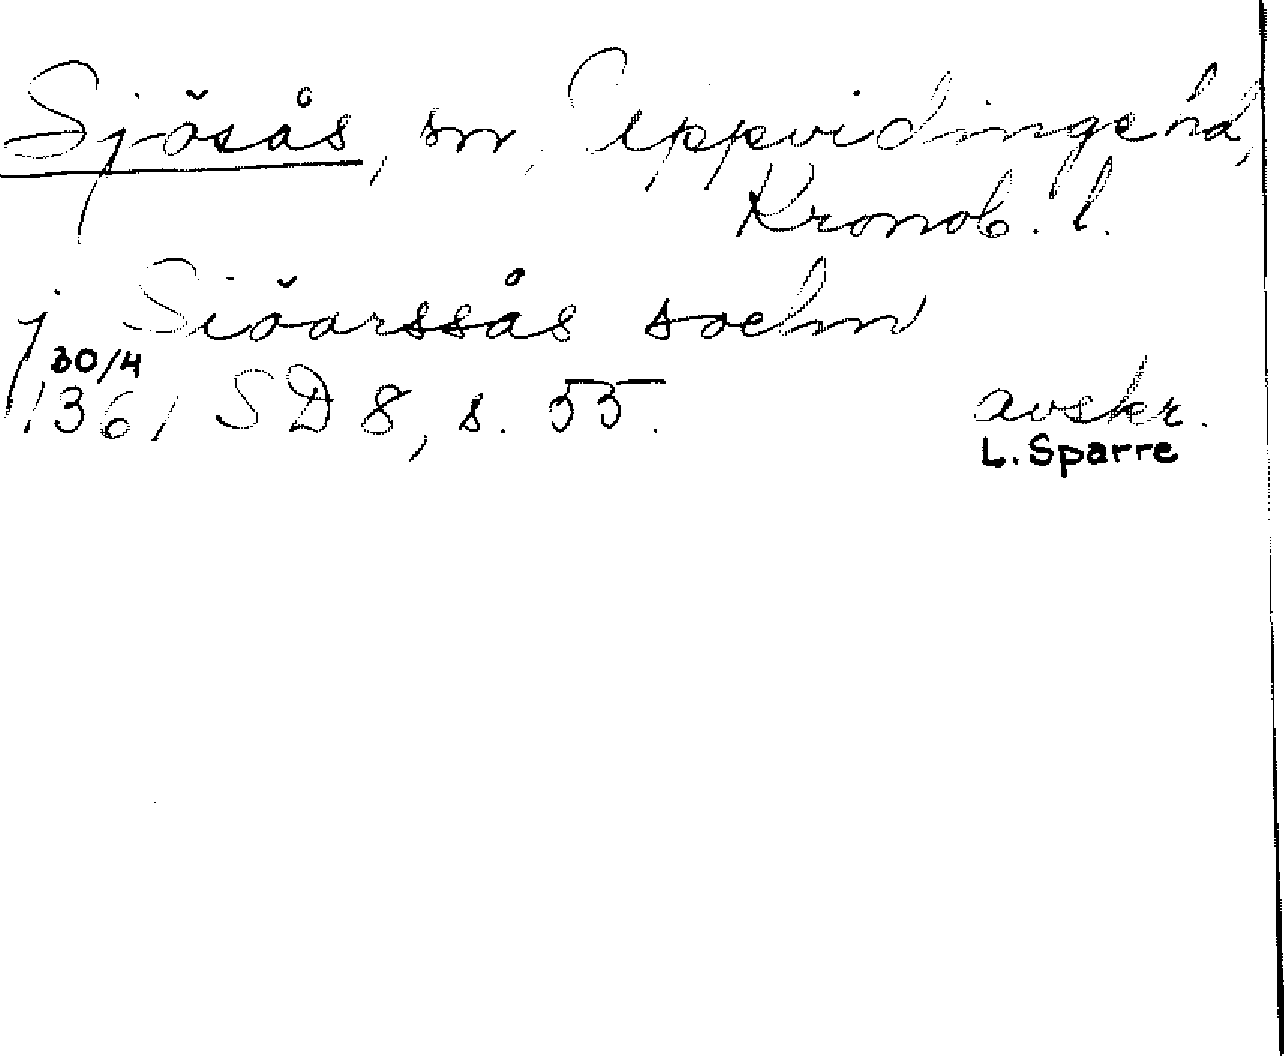 Sjösås, sn, Uppvidinge hd,
Kronob. l.
j Siöarssås sochn
30/4
1361 SD 8, s. 55.
avskr.
L. Sparre